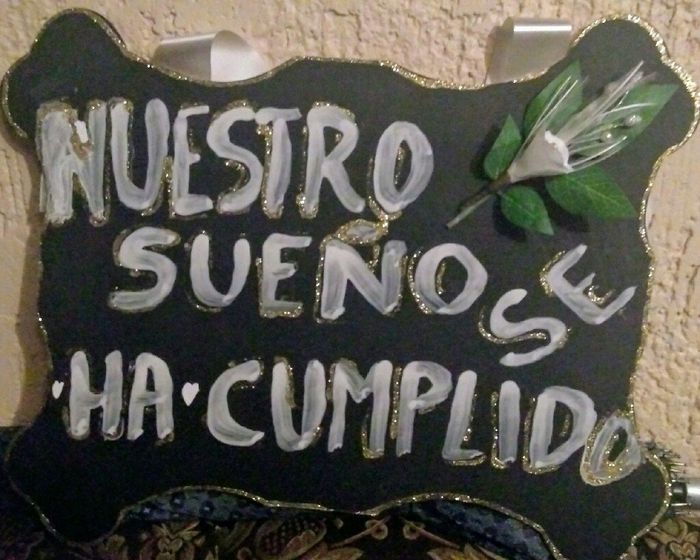 NUESTRO
SUEÑO SE
HA CUMPLIDO